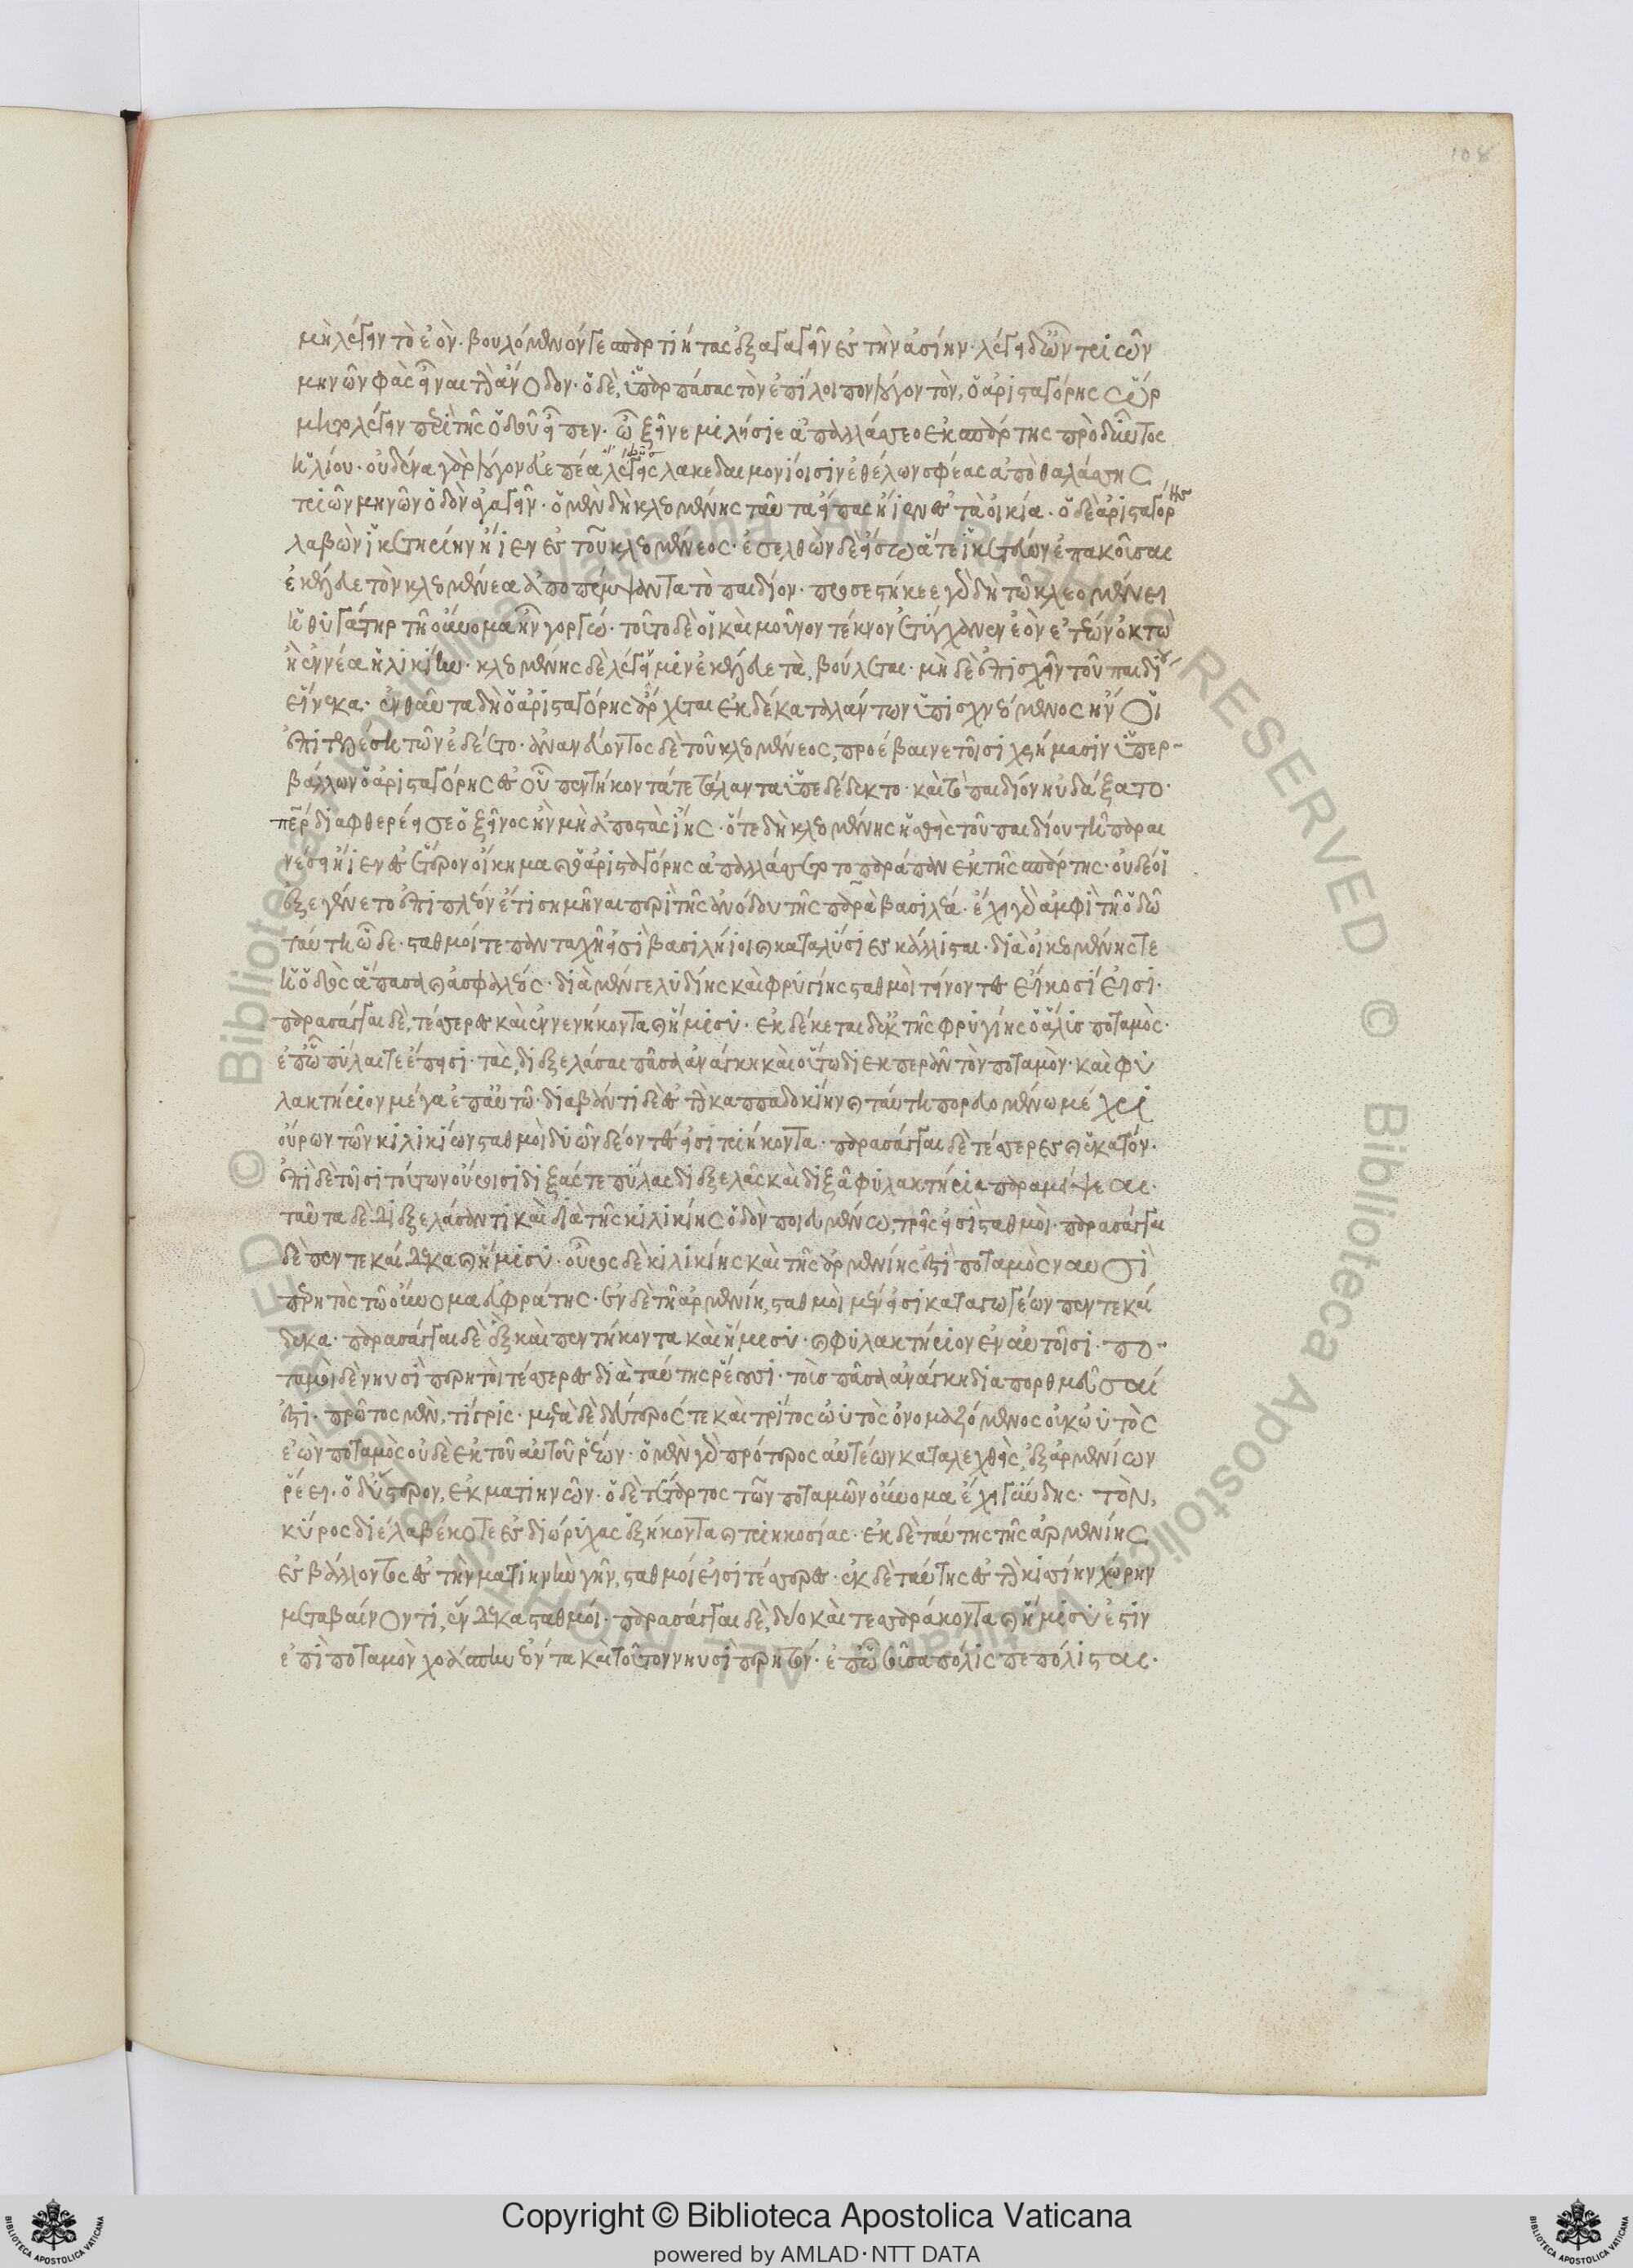 108
μὴ λέγειν τὸ ἐὸν. βουλόμενόν γε σπαρτιήτας ἐξαγαγεῖν ἐς τὴν ἀσίην. λέγει δ' ὦν τριῶν
μηνῶν φὰς εἶναι τὴν ἄνοδον. ὁ δὲ, ὑπαρπάσας τὸν ἐπίλοιπον λόγον τὸν, ὁ ἀρισταγόρης ὥρ
μητο λέγειν περὶ τῆς ὁδοῦ εἶπεν. ὦ ξεῖνε μιλήσιε ἀπαλλάσσεο ἐκ σπάρτης πρὸ δύντος
ἡλίου. οὐδένα γὰρ λόγον εὐεπέα λέγεις λακεδαιμονίοισιν ἐθέλων σφέας ἀπὸ θαλάσσης
τριῶν μηνῶν ὁδὸν ἀγαγεῖν. ὁ μὲν δὴ κλεομένης ταῦτα εἴπας ἤιεν ἐς τὰ οἰκία. ὁ δὲ ἀρισταγόρης
λαβὼν ἱκετηρίην ἤιεν ἐς τοῦ κλεομένεος. ἐσελθὼν δὲ εἴσω ἅτε ἱκετεύων ἐπακοῦσαι
ἐκέλευε τὸν κλεομένεα ἀποπέμψαντα τὸ παιδίον. προσεστήκεε γὰρ δὴ τῶ κλεομένει
ἡ θυγάτηρ τῆ οὔνομα ἦν γοργώ. τοῦτο δὲ οἱ καὶ μοῦνον τέκνον ἐτύγχανεν ἐὸν ἐτέων ὀκτὼ
ἢ ἐννέα ἡλικίην. κλεομένης δὲ λέγειν μιν ἐκέλευε τὰ, βούλεται. μὴ δὲ ἐπισχεῖν τοῦ παιδίου
εἵνεκα. ἐνθαῦτα δὴ ὁ ἀρισταγόρης ἄρχεται ἐκ δέκα ταλάντων ὑπισχνεόμενος ἤν οἱ
ἐπιτελέση τῶν ἐδέετο. ἀνανεύοντος δὲ τοῦ κλεομένεος, προέβαινε τοῖσι χρήμασιν ὑπερ
βάλλων ὁ ἀρισταγόρης ἐς οὗ πεντήκοντά τε τάλαντα ὑπεδέδεκτο. καὶ τὸ παιδίον ηὐδάξατο.
περ διαφθερέει σε ὁ ξεῖνος ἢν μὴ ἀποστὰς ἴης. ὅ τε δὴ κλεομένης ἡσθεὶς τοῦ παιδίου τῆ παραι
νέσει ἤιεν ἐς ἕτερον οἴκημα καὶ ὁ ἀρισταγόρης ἀπαλλάσσετο τὸ παράπαν ἐκ τῆς σπάρτης. οὐδέ οἱ
ἐξεγένετο ἐπὶ πλέον ἔτι σημῆναι περὶ τῆς ἀνόδου τῆς παρὰ βασιλέα. ἔχει γὰρ ἀμφὶ τῆ ὁδῶ
ταύτη ὧδε. σταθμοί τε πανταχῆ εἰσὶ βασιλήιοι καὶ καταλύσιες κάλλισται. διὰ οἰκεομένης τε
ἡ ὁδὸς ἅπασα καὶ ἀσφαλέος. διὰ μέν γε λυδίης καὶ φρυγίης σταθμοὶ τείνοντες εἴκοσί εἰσι.
παρασάγγαι δὲ, τέσσερες καὶ ἐννενήκοντα καὶ ἥμισυ. ἐκδέκεται δὲ ἐκ τῆς φρυγίης ὁ ἅλις ποταμὸς.
ἐπ' ὧ πύλαι τε ἔπεισι. τὰς, διεξελάσαι πᾶσα ἀνάγκη καὶ οὕτω διεκπερᾶν τὸν ποταμὸν. καὶ φυ
λακτήριον μέγα ἐπ' αὐτῶ. διαβάντι δὲ ἐς τὴν καππαδοκίην καὶ ταύτη πορευομένω μέχρι
οὔρων τῶν κιλικίων σταθμοὶ δυῶν δέοντές εἰσι τριήκοντα. παρασάγγαι δὲ τέσσερες καὶ ἑκατόν.
ἐπὶ δὲ τοῖσι τούτων οὔροισι διξάς τε πύλας διεξελᾶς καὶ διξὰ φυλακτήρια παραμείψεαι.
ταῦτα δὲ διεξελάσαντι καὶ διὰ τῆς κιλικίης ὁδὸν ποιευμένω, τρεῖς εἰσι σταθμοὶ. παρασάγγαι
δὲ πεντεκαίδεκα καὶ ἥμισυ. οὖρος δὲ κιλικίης καὶ τῆς ἀρμενίης ἐστὶ ποταμὸς νηυσὶ
περητὸς τῶ οὔνομα εὐφράτης. ἐν δὲ τῆ ἀρμενίη, σταθμοὶ μέν εἰσι καταγωγέων πεντεκαί
δεκα. παρασάγγαι δὲ ἓξ καὶ πεντήκοντα καὶ ἥμισυ. καὶ φυλακτήριον ἐν αὐτοῖσι. πο
ταμοὶ δὲ νηυσὶ περητοὶ τέσσερες διὰ ταύτης ῥέουσι. τοὺς πᾶσα ἀνάγκη διαπορθμεῦσαί
ἐστι. πρῶτος μὲν, τίγρις. μετὰ δὲ δεύτερός τε καὶ τρίτος ὡυτὸς ὀνομαζόμενος οὐκ ὡυτὸς
ἐὼν ποταμὸς οὐδὲ ἐκ τοῦ αὐτοῦ ῥέων. ὁ μὲν γὰρ πρότερος αὐτέων καταλεχθεὶς, ἐξ ἀρμενίων
ῥέει. ὁ δ' ὕστερον, ἐκ ματιηνῶν. ὁ δὲ τέταρτος τῶν ποταμῶν οὔνομα ἔχει γύνδης. τὸν,
κῦρος διέλαβέ κοτε ἐς διώρυχας ἑξήκοντα καὶ τριηκοσίας. ἐκ δὲ ταύτης τῆς ἀρμενίης
ἐσβάλλοντος ἐς τὴν ματιηνὴν γῆν, σταθμοί εἰσι τέσσερες. ἐκ δὲ ταύτης ἐς τὴν κισσίην χώρην
μεταβαίνοντι, ἕνδεκα σταθμοί. παρασάγγαι δὲ, δύο καὶ τεσσεράκοντα καὶ ἥμισύ ἐστιν
ἐπὶ ποταμὸν χοάσπην ἐόντα καὶ τοῦτον νηυσὶ περητόν. ἐπ' ὧ σοῦσα πόλις πεπόλισται.
Copyright © Biblioteca Apostolica Vaticana
powered by AMLAD·NTT DATA